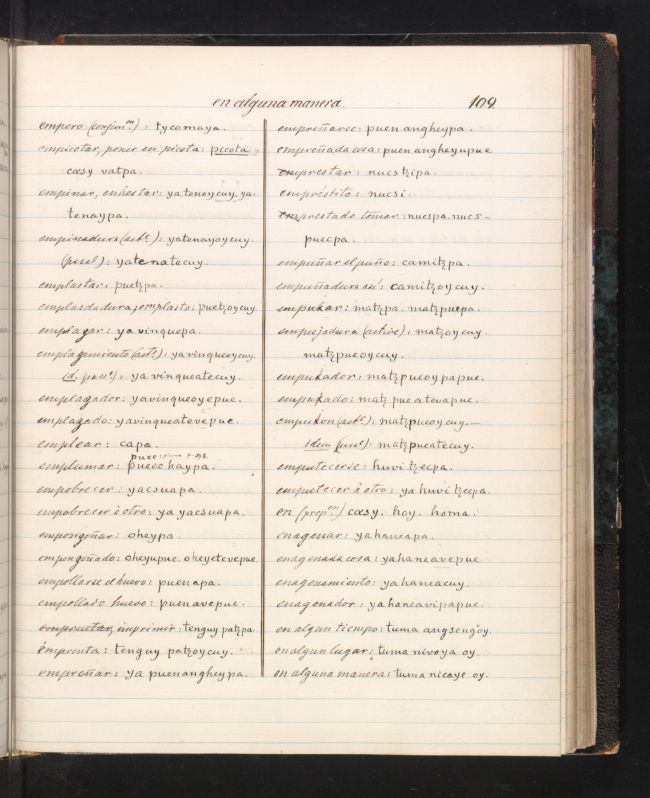 en alguna manera
109
empero (conjun.on): tycomaya.
empicotar, poner en picota: picota
cœsy vatpa.
empinar, enhestar: yatenoycuy. ya-
tenaypa.
empinadura (act.e): yatenayoycuy.
yatenatecuy.
emplastar: puetzpa.
emplasdadura, emplasto: puetzoycuy
emplazar: yavinquepa.
emplazamiento (act.e): yavinqueoycuy.
id. pass.e): yavinqueatecuy.
emplazador: yavinqueoyepue.
emplazado: yavinqueatevepue.
emplear: capa.
puec
emplumar: pueechaypa.
empobrecer: yacsuapa.
empobrecer à otro: yayacsuapa.
emponzoñar: oheypa.
emponzoñado: oheyupue. oheyetevepue
empollarse el huevo: puenapa.
empollado huevo: puenavepue.
imprimir: tenguy patzpa
emprenta: tenguy patzoycuy.
empreñar: ya puenangheypa.
empreñarse: puenangheypa.
empreñada cosa: puenangheyupue
emprestar: nucstzipa.
empréstito: nucsi.
emprestado tomar: nucspa. nucs-
puecpa.
empuñar el puño: camitzpa.
empuñadura así: camitzoycuy.
empuxar: matzpa. matzpuepa.
empujadura (active): matzoycuy.
matzpueoycuy.
empuxador: matzpueoypapue.
empuxado: matzpueatevapue.
empuxon (act.e): matzpueoycuy.—
idem matzpucatecuy.
emputecerse: huvitzecpa.
emputecer à otro: yahuvitzecpa.
en (prep.on) cœsy. hoy. homa.
enagenar: yahancapa.
enagenada cosa: yahancavepue
enagenamiento: yahancacuy.
enagenador: yahancavipapue.
en algun tiempo: tuma angsengoy.
en algun lugar: tuma nivoya oy.
en alguna manera: tuma nicaye oy.